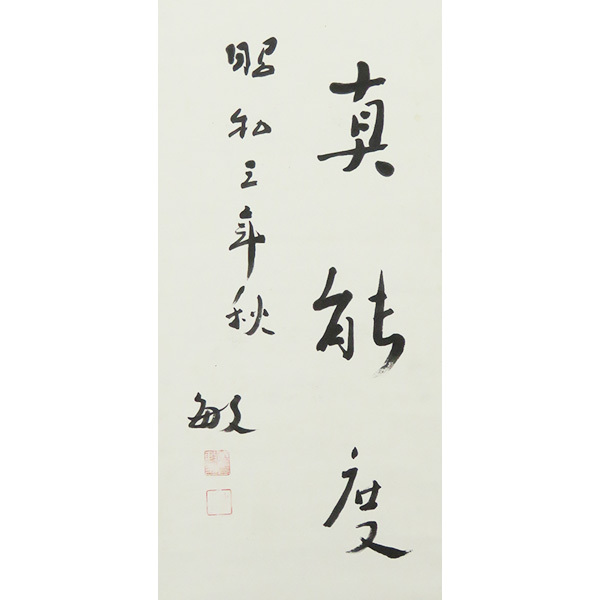 真能度
昭和三年秋
敏